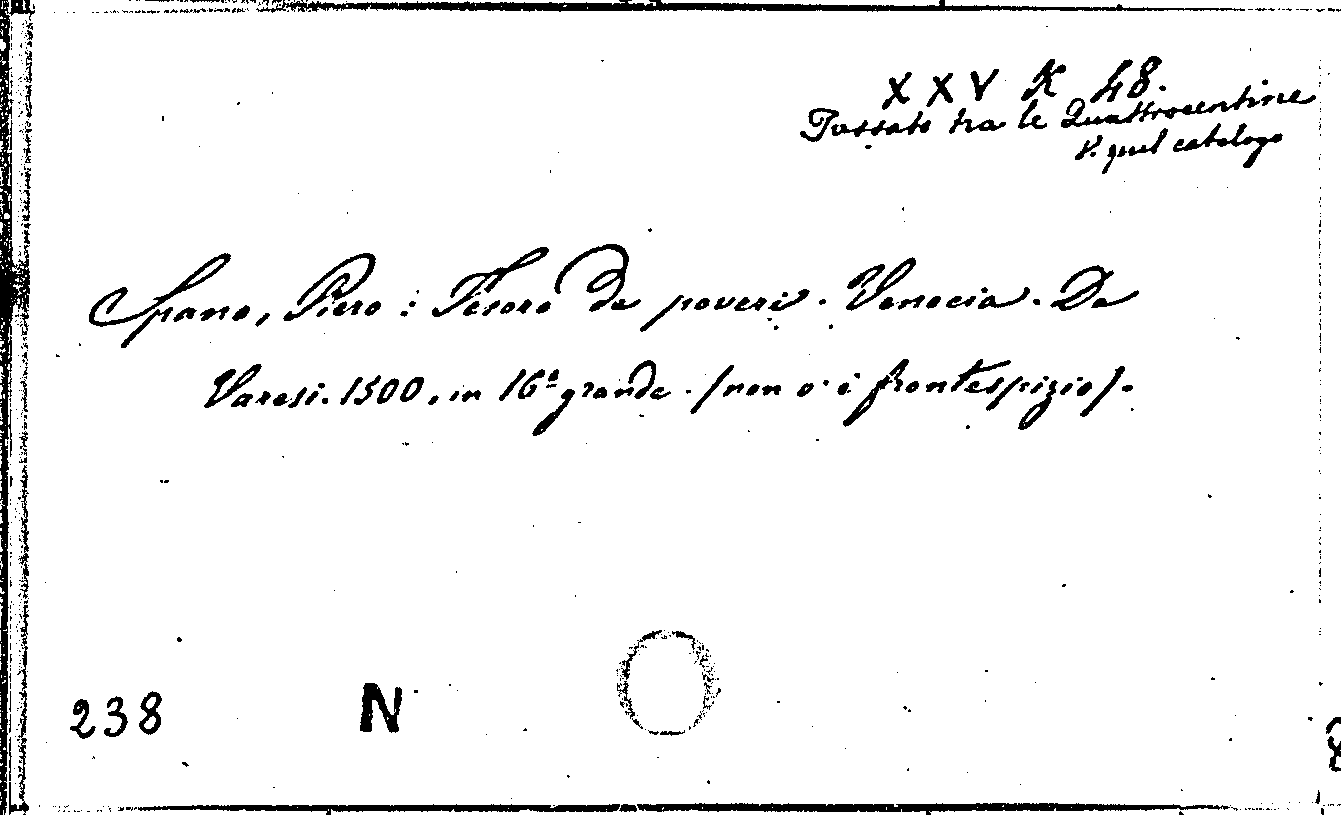 XXV K 48.
Passato tra le Quattrocentine
V. quel catalogo
Spano, Piero: Tesoro de poveri. Venecia. De
Varesi. 1500. in 16º grande. (non v'è frontespizio).
238 N